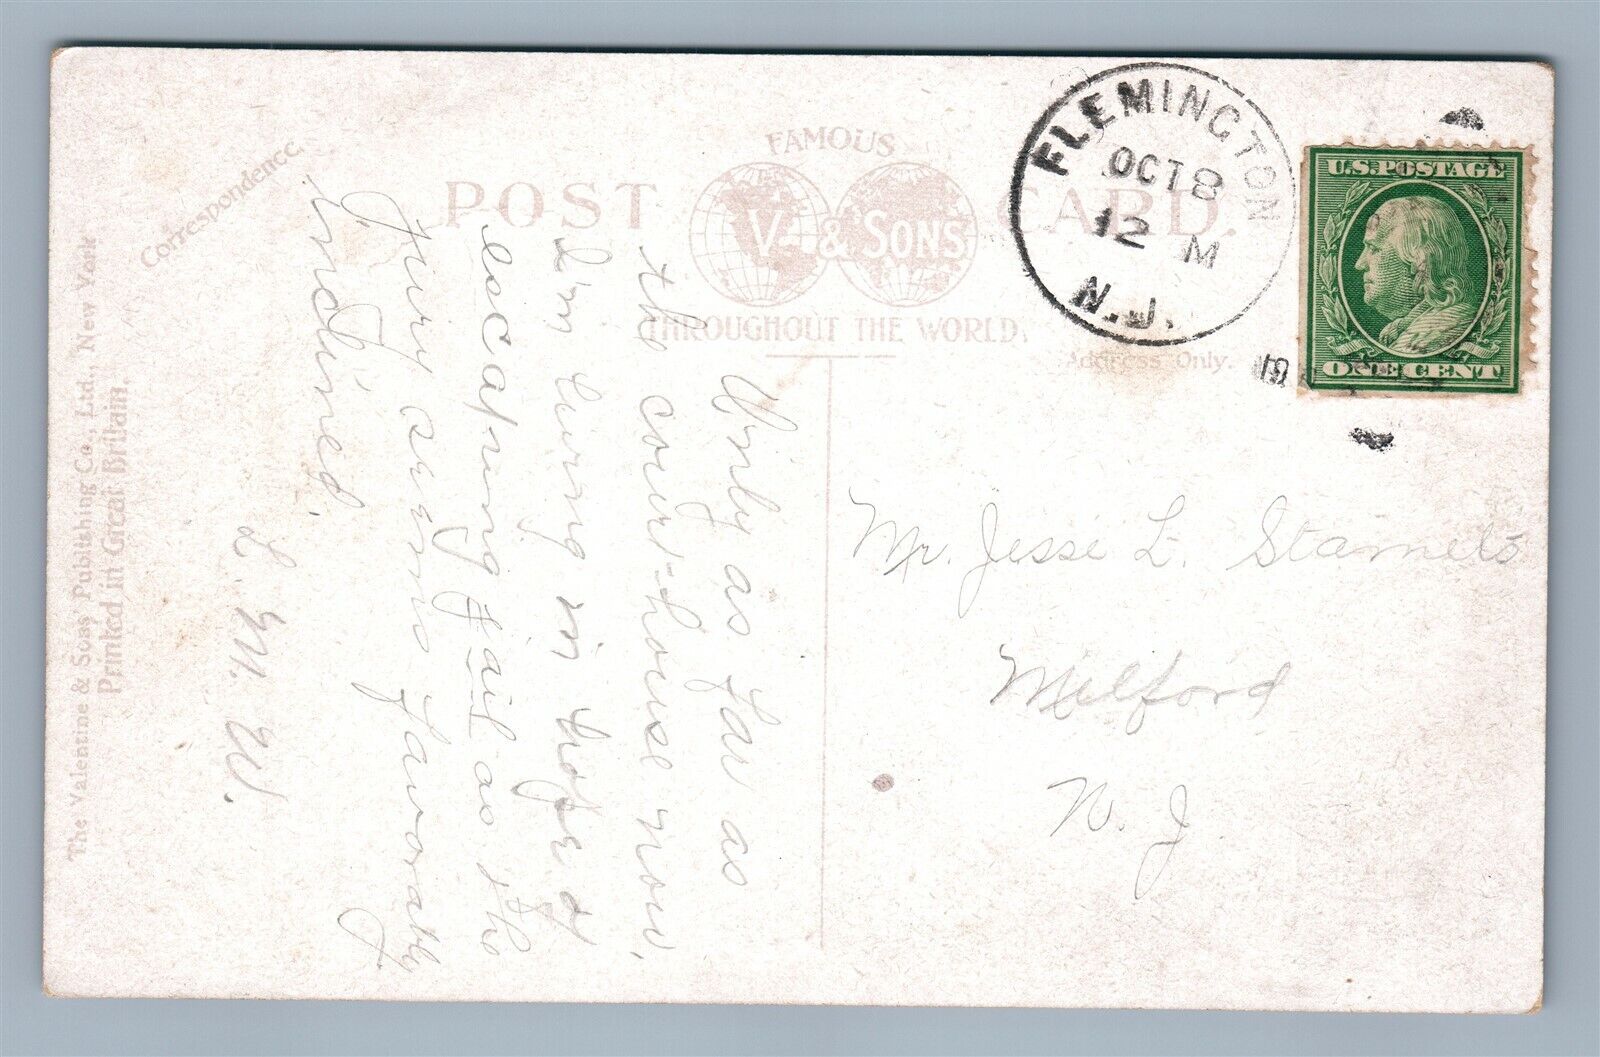 FAMOUS
POST CARD.
V. & SONS
THROUGHOUT THE WORLD.
Address Only.
Correspondence.
The Valentine & Sons' Publishing Co., Ltd., New York
Printed in Great Britain.
FLEMINGTON
OCT 8
12 M
N.J.
U.S. POSTAGE
ONE CENT
Only as far as
the court-house now,
I'm living in hopes of
escaping jail as the
jury seems favorably
inclined.
L. M. W.
Mr. Jesse L. Stamets
Milford
N. J.